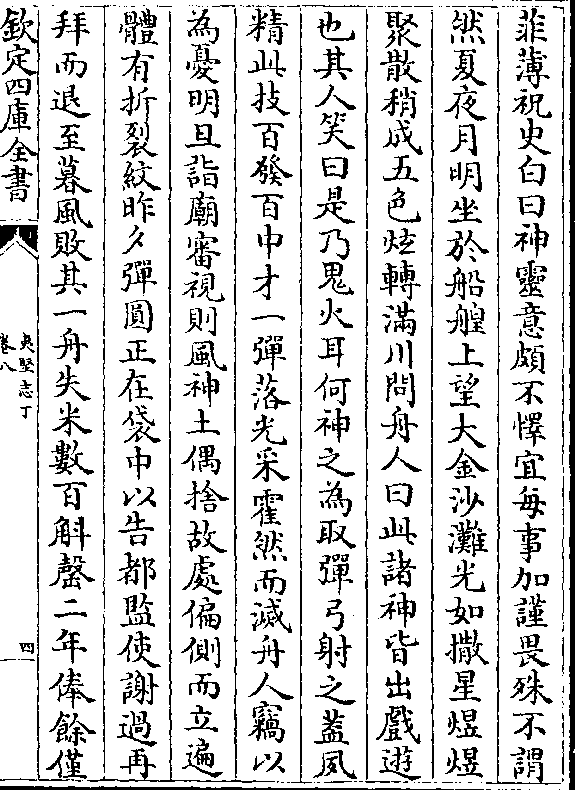 菲薄祝史白曰神靈意頗不懌宜每事加謹畏殊不謂
然夏夜月明坐於船艎上望大金沙灘光如撒星煜煜
聚散稍成五色炫轉滿川問舟人曰此諸神皆出戲遊
也其人笑曰是乃鬼火耳何神之為取彈弓射之蓋夙
精此技百發百中才一彈落光采霍然而滅舟人竊以
為憂明旦詣廟審視則風神土偶捨故處偏側而立遍
體有折裂紋昨夕彈圓正在袋中以告都監使謝過再
拜而退至暮風敗其一舟失米數百斛罄二年俸餘僅
欽定四庫全書
夷堅志丁
卷八
四